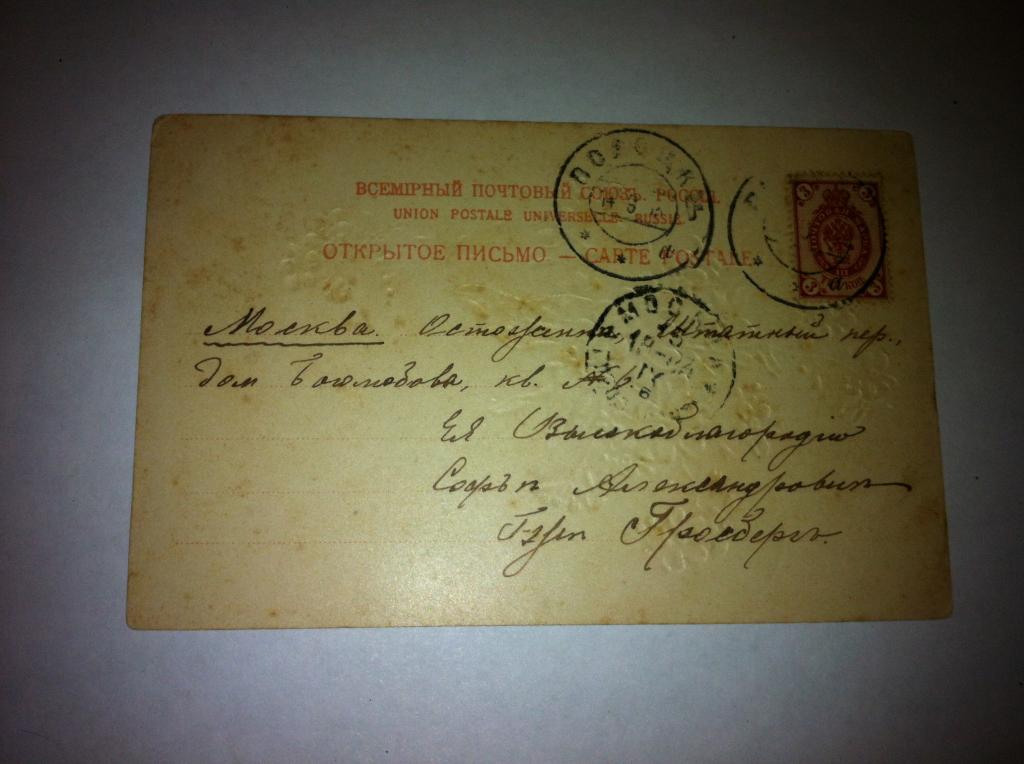 ВСЕМІРНЫЙ ПОЧТОВЫЙ СОЮЗЪ. РОССІЯ.
UNION POSTALE UNIVERSELLE. RUSSIE
ОТКРЫТОЕ ПИСЬМО — CARTE POSTALE
3 3
3 3
Москва. Остоженка, Штатный пер.,
дом кв. № 6.
Ея Высокоблагородію
Софьѣ Александровнѣ
Г-жѣ Гросбергъ.
МОСКВА